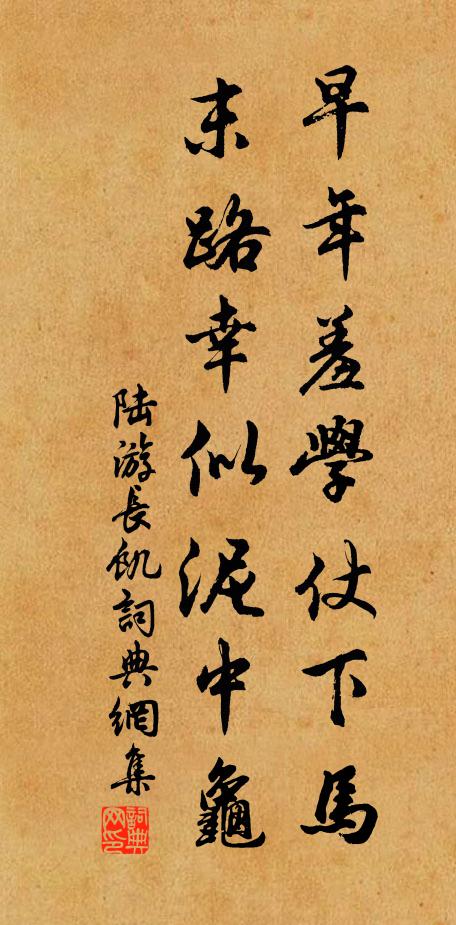 早年羞學仗下馬
末路幸似泥中龜
陸游長飢詞典網集
詞典网印